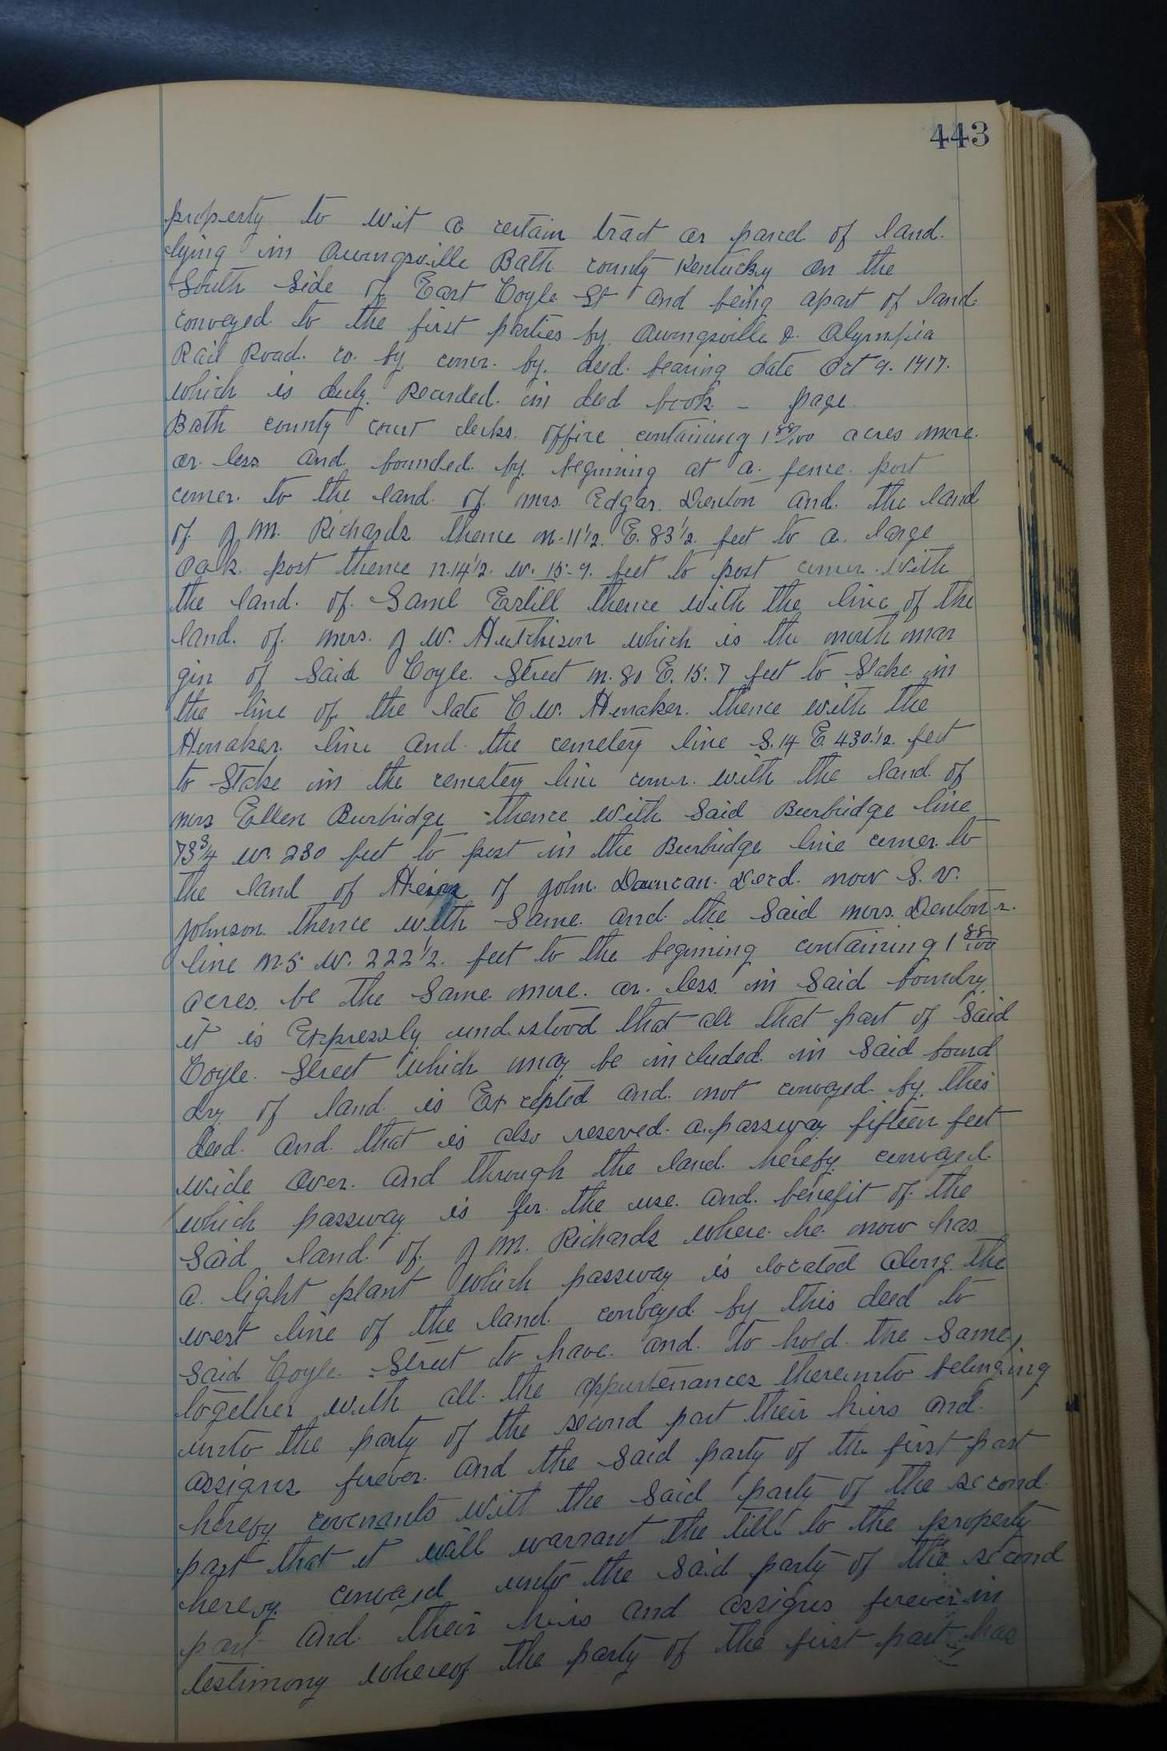 443
property to wit a certain tract or parcel of land.
lying in Owingsville Bath county Kentucky on the
South Side of East Coyle St and being apart of land
conveyed to the first parties by Owingsville & Olympia
Rail Road. co. by comr. by. deed. bearing date Oct 9. 1917.
which is duly. Recorded. in deed book - page
Bath county court clerks. office containing 1 88/100 acres more
or less and bounded by begining at a. fence. post
corner. to the land. of mrs Edgar. Denton and. the land
of. J M. Richards thence N. 11 1/2. E. 83 1/2. feet to a. large
Oak. post thence N. 14 1/2. W. 15-9. feet to post corner. with
the land. of. Saml Estill thence with the line of the
land. of. mrs. J W. Hutchison which is the north mar
gin of Said Coyle. Street N. 80 E. 15.7 feet to Stake in
the line of the late C. W. Honaker. thence with the
Honaker. line and the cemetery line S. 14 E. 430. 1/2. feet
to Stake in the cemetery line corner. with the land of
mrs Ellen Burbridge thence with Said Burbridge line
73 3/4 W. 230 feet to post in the Burbridge line corner to
the land of Heirs of John. Duncan. Decd. now S. V.
Johnson. thence with Same. and. the Said mrs. Denton
line N. 5 W. 222 1/2. feet to the begining containing 1 88/100
acres. be the Same more. or. less. in Said boundry.
it is Expressly understood that all that part of Said
Coyle. Street which may be included. in Said bound
dry of land is Excepted and. not conveyed by. this
deed. and. that is also reserved. a passway fifteen feet
wide over. and through the land. hereby conveyed
which passway is for. the use. and. benefit of. the
Said land of. J M. Richards where. he now has
a. light plant which passway. is located along. the
west line of the land conveyed by this deed to
Said Coyle. Street to have. and. to hold. the Same,
together with all the appurtenances thereunto belonging
unto the party of the second part their heirs and.
assigns forever. and the Said party of the first part
hereby covenants with the Said party of the second.
part that it will warrant the title to the property
hereby. conveyed unto the Said party of the second
part and their heirs and assigns forever. in
testimony whereof the party of the first part has